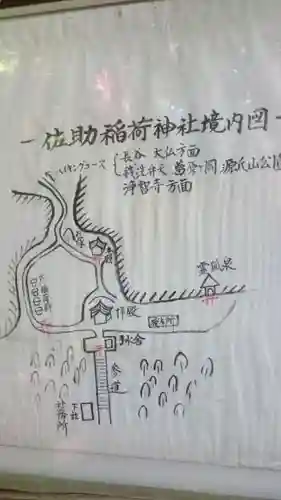 －佐助稲荷神社境内図－
長谷 大仏方面
ハイキングコース 銭洗弁天 葛原ヶ岡 源氏山公園
浄智寺方面
本殿
霊狐泉
拝殿
手水舎
参道
下社
社務所